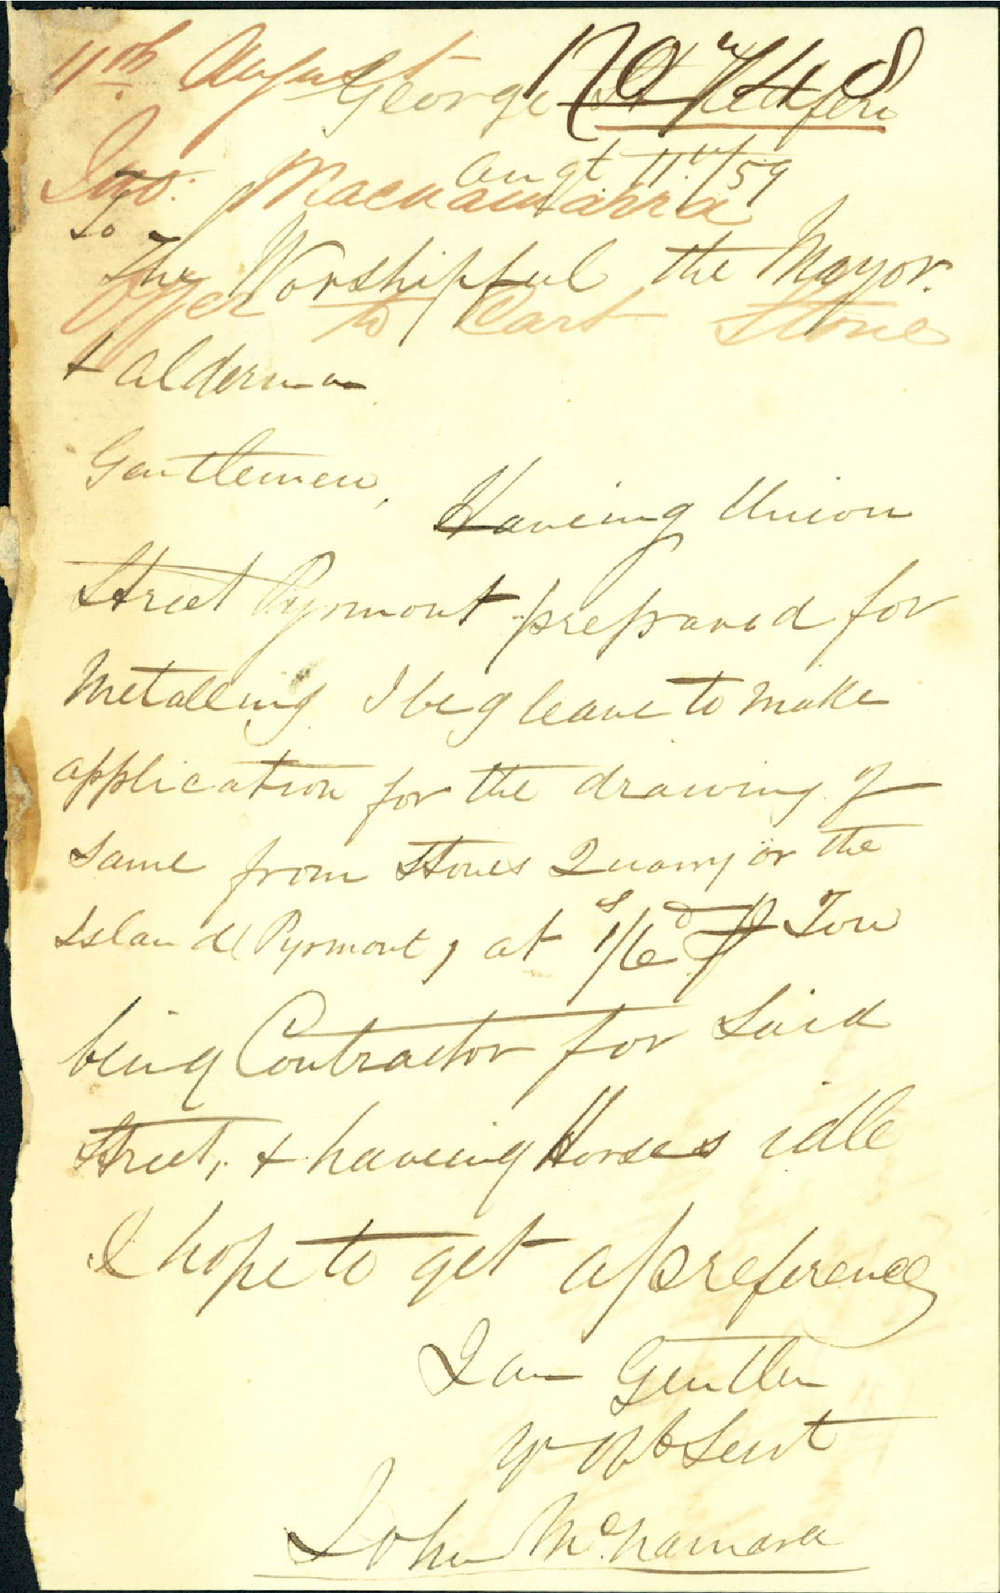 11th August
George St Redfern
Augt 11th/59
Jno: Macnamarra
To
The Worshipful the Mayor.
Offer to Cart Stone
+ alderman
Gentlemen,
Haveing Union
Street Pyrmont prepared for
Metalling I beg leave to make
application for the drawing of
Same from Stones Quarry or the
Island (Pyrmont, at 1s/6d ⅌ Ton
being Contractor for Said
Street, + haveing Horses idle
I hope to get a preference
I am Gentlen
yr obt Servt
John McNamara